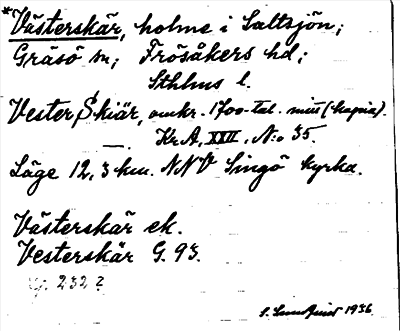 *Västerskär, holme i Saltsjön;
Gräsö sn; Frösåkers hd;
Sthlms l.
Vester Skiär, omkr. 1700-tal. mitt (kopia).
—. Kr.A, XXII, N:o 35.
Läge 12,3 km. NNV Singö kyrka.
Västerskär ek.
Vesterskär G. 93.
232 ?
1936